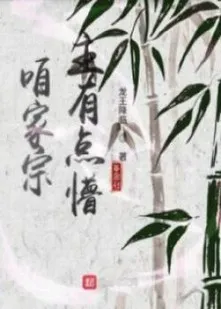 咱家宗
主有点懵
龙王降临 著